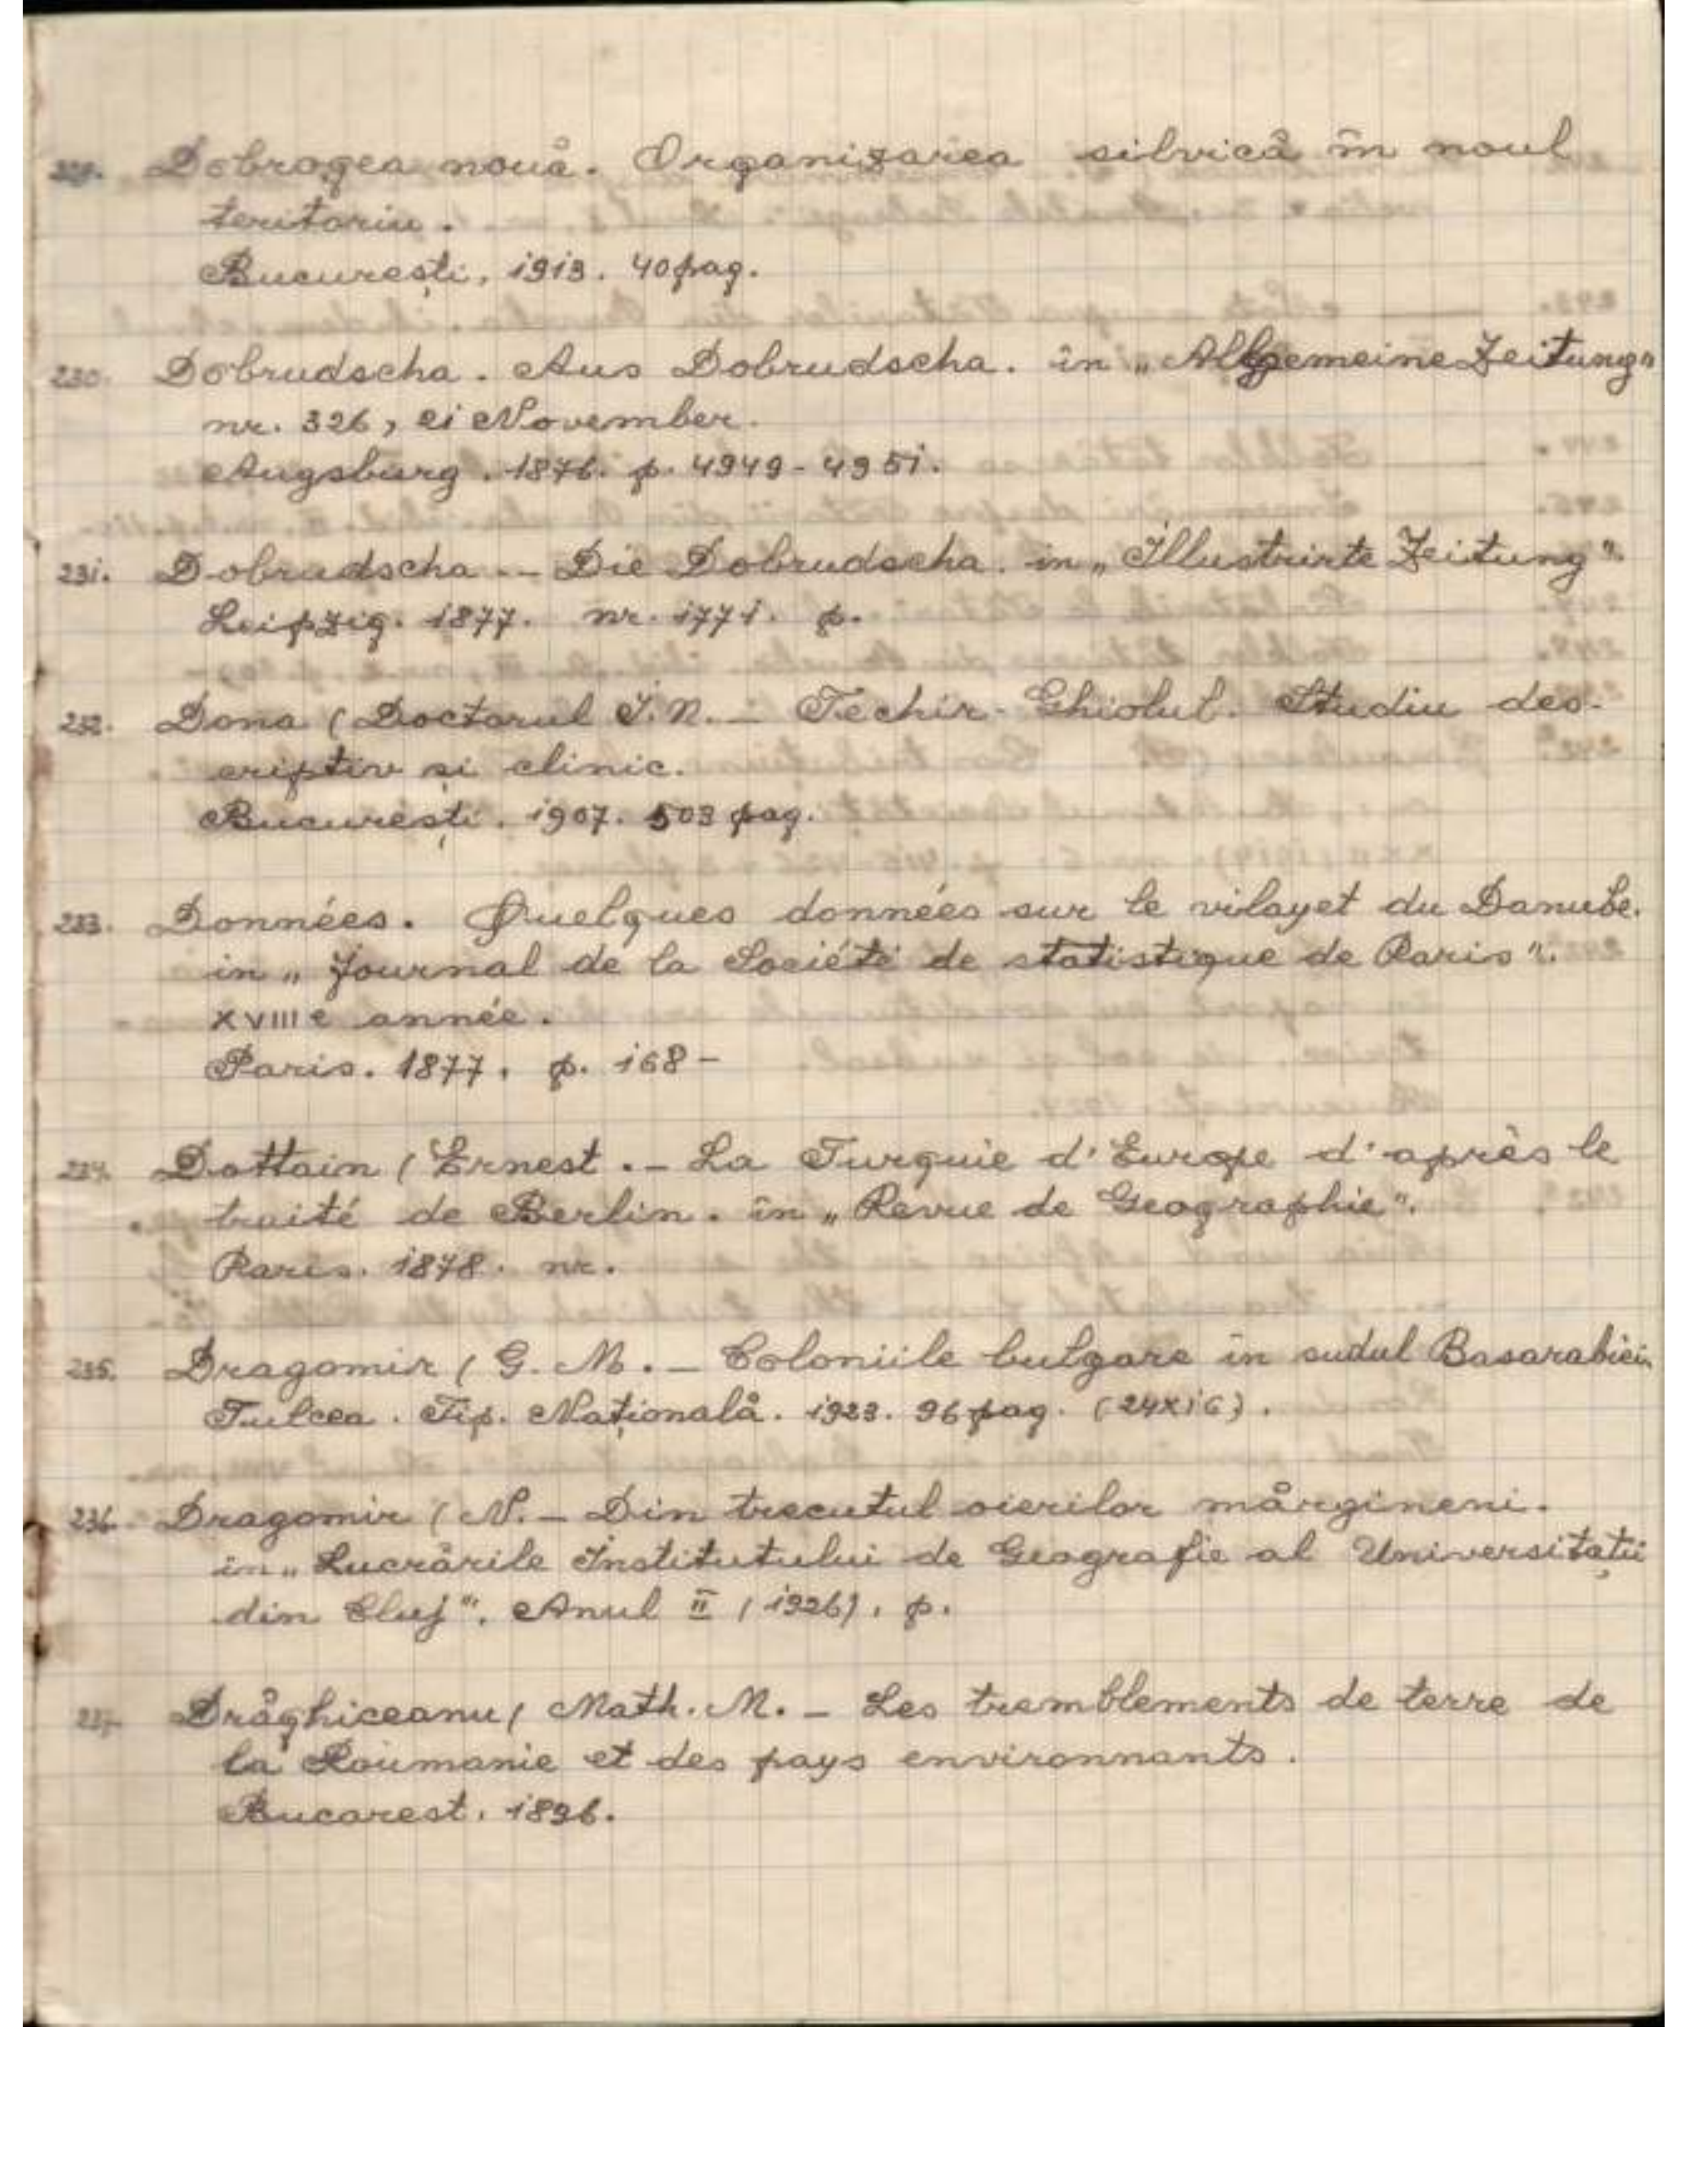 229. Dobrogea nouă. Organizarea silvică în noul
teritoriu.
București, 1913. 40 pag.
230. Dobrudscha. Aus Dobrudscha. în „Allgemeine Zeitung"
nr. 326, 21 November.
Augsburg. 1876. p. 4949-4951.
231. Dobrudscha -- Die Dobrudscha. in „Illustrirte Zeitung".
Leipzig. 1877. nr. 1771. p.
232. Dona (Doctorul I.N. - Techir-Ghiolul. Studiu des-
criptiv și clinic.
București. 1907. 503 pag.
233. Données. Quelques données sur le vilayet du Danube.
in „Journal de la Société de statistique de Paris".
XVIIIe année.
Paris. 1877. p. 168-
234. Dottain (Ernest.- La Turquie d'Europe d'après le
traité de Berlin. în „Revue de Geographie".
Paris. 1878. nr.
235. Dragomir (G. M. - Coloniile bulgare în sudul Basarabiei.
Tulcea. Tip. Națională. 1923. 96 pag. (24x16).
236. Dragomir (N. - Din trecutul oierilor mărgineni.
in „Lucrările Institutului de Geografie al Universitații
din Cluj". Anul II (1926). p.
237. Drăghiceanu (Math. M. - Les tremblements de terre de
la Roumanie et des pays environnants.
Bucarest. 1896.